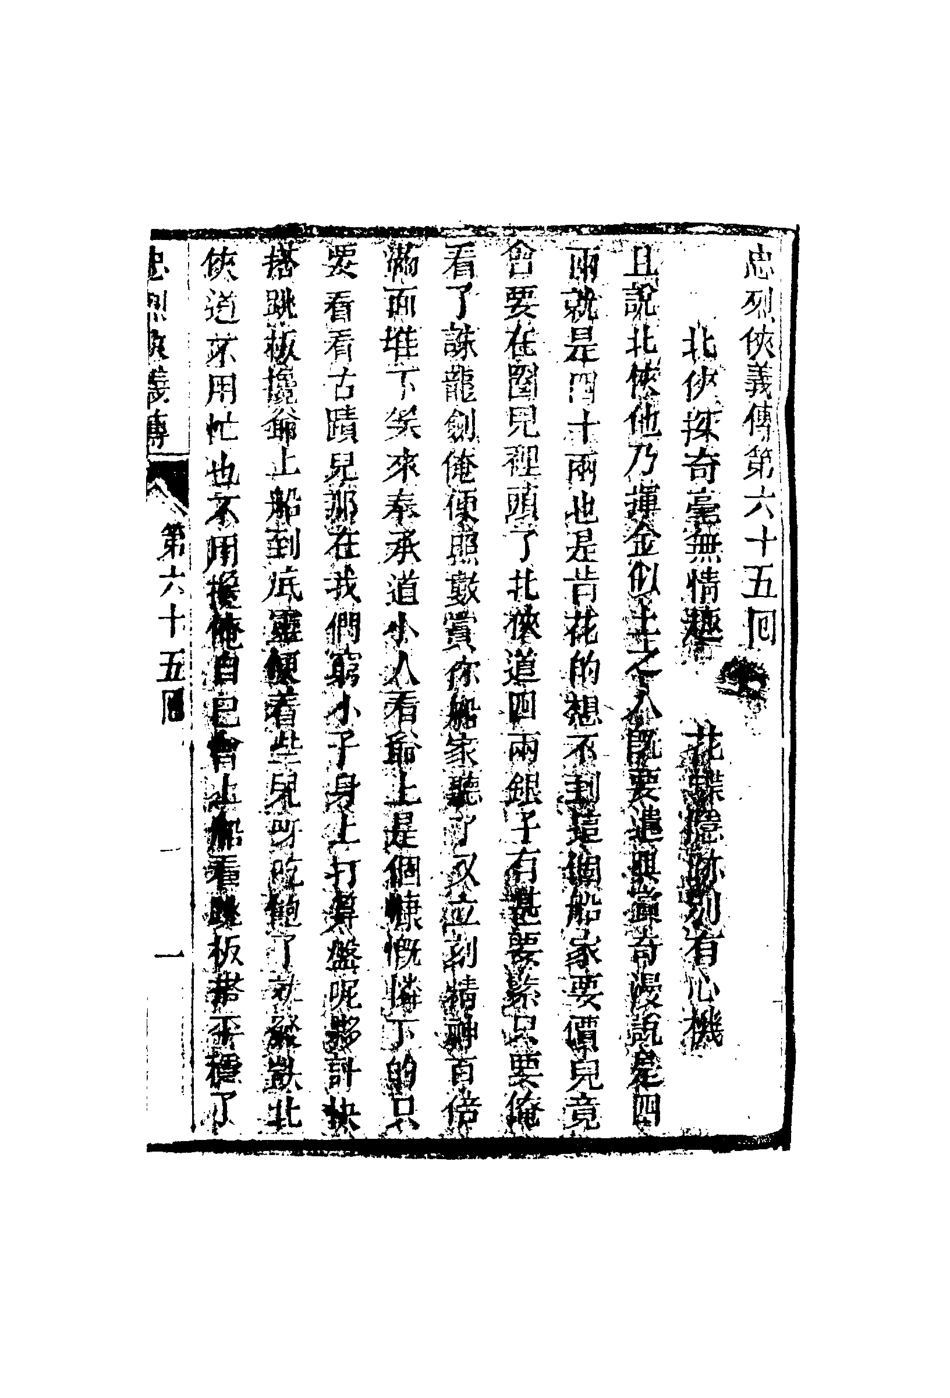 忠烈俠義傳第六十五囘
北俠探奇毫無情趣　花蝶隱跡別有心機
且說北俠他乃揮金似土之人既要遣興賞奇漫說是四
兩就是四十兩也是肯花的想不到這個船家要價兒竟
會要在圈兒裡頭了北俠道四兩銀子有甚要緊只要俺
看了誅龍劍俺便照數賞你船家聽了又立刻精神百倍
滿面堆下笑來奉承道小人看爺上是個慷慨憐下的只
要看看古蹟兒那在我們窮小子身上打算盤呢夥計快
搭跳板攙爺上船到底靈便着些兒呀吃飽了就發獃北
俠道不用忙也不用攙俺自己會上船看跳板搭平穩了
忠烈俠義傳　第六十五囘　一